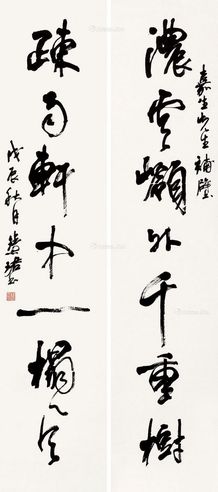 濃雲嶺外千重樹
嘉生先生補壁
疎雨軒中一榻風
戊辰秋月